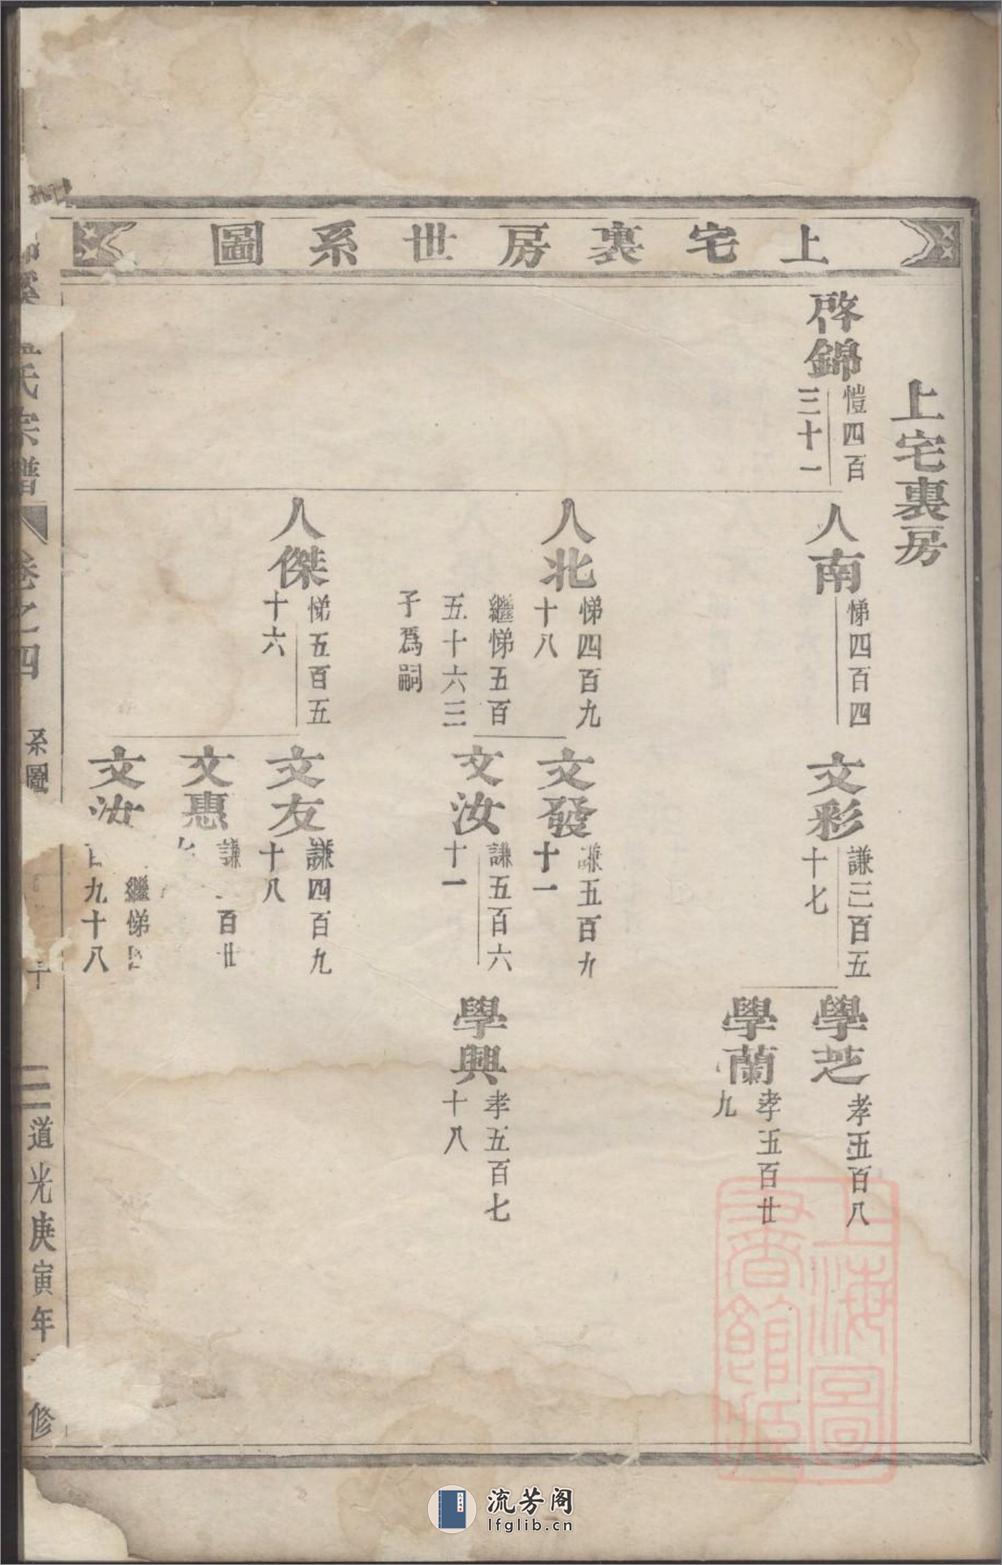 上宅裏房世系圖
上宅裏房
啓錦
愷四百
三十一
人南
悌四百四
文彩
謙三百五
十七
學芝
孝五百八
學蘭
孝五百廿
九
人北
悌四百九
十八
繼悌五百
五十六三
子爲嗣
文發
謙五百九
十一
文汝
謙五百六
十一
學興
孝五百七
十八
人傑
悌五百五
十六
文友
謙四百九
十八
文惠
謙 百廿
文汝
繼悌
百九十八
氏宗譜
卷之四
系圖
道光庚寅年
修
上海圖
書館藏
流芳阁
lfglib.cn